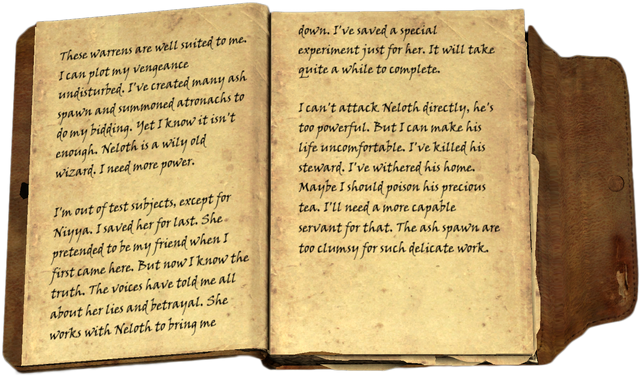 These warrens are well suited to me.
I can plot my vengeance
undisturbed. I've created many ash
spawn and summoned atronachs to
do my bidding. Yet I know it isn't
enough. Neloth is a wily old
wizard. I need more power.
I'm out of test subjects, except for
Niyya. I saved her for last. She
pretended to be my friend when I
first came here. But now I know the
truth. The voices have told me all
about her lies and betrayal. She
works with Neloth to bring me
down. I've saved a special
experiment just for her. It will take
quite a while to complete.
I can't attack Neloth directly, he's
too powerful. But I can make his
life uncomfortable. I've killed his
steward. I've withered his home.
Maybe I should poison his precious
tea. I'll need a more capable
servant for that. The ash spawn are
too clumsy for such delicate work.